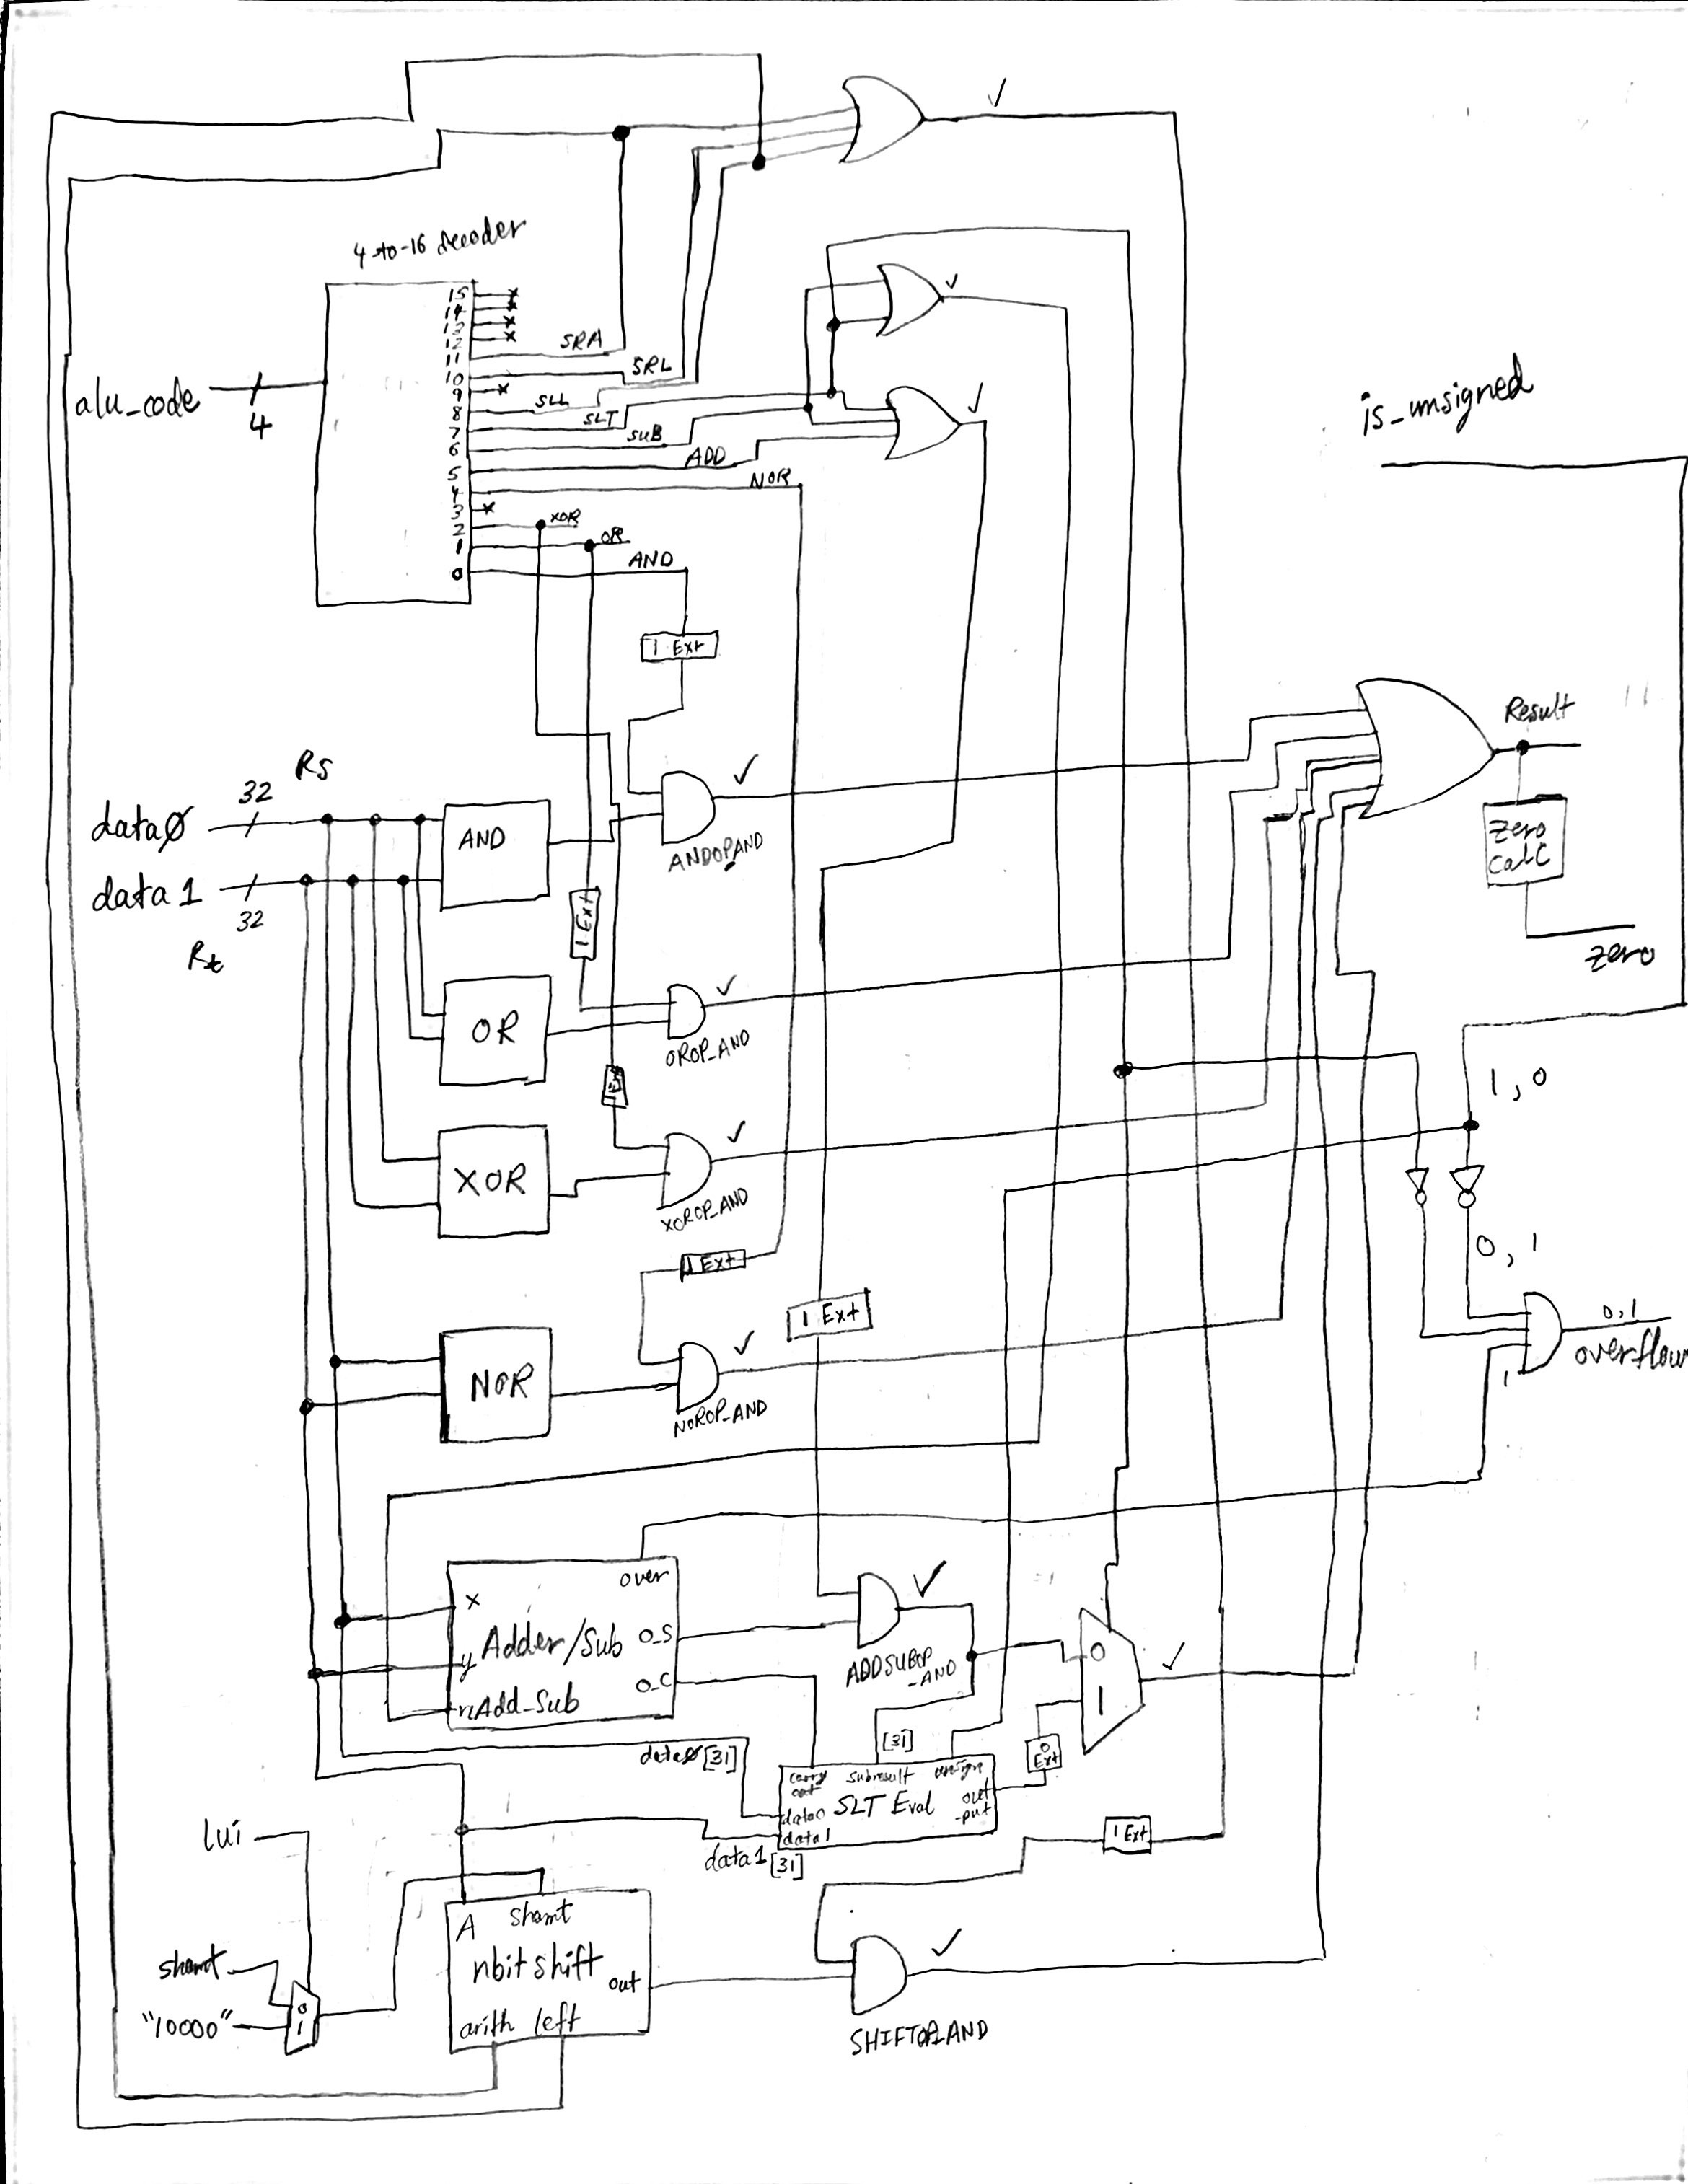 4-to-16 decoder
15
14
13
12
11
10
9
8
7
6
5
4
3
2
1
0
SRA
SRL
SLL
SLT
SUB
ADD
NOR
XOR
OR
AND
alu_code
4
is_unsigned
1 Ext
Rs
32
data0
data1
32
Rt
AND
ANDOP_AND
1 Ext
Result
Zero
Calc
zero
OR
OROP_AND
1, 0
XOR
XOROP_AND
0, 1
1 Ext
1 Ext
0,1
overflow
1
NOR
NOROP_AND
over
x
Adder/Sub
O_S
y
O_C
nAdd_Sub
ADDSUBOP
_AND
0
1
[31]
0
Ext
data0[31]
carry
out
subresult
unsign
data0
SLT Eval
out
-put
data1
data1[31]
1 Ext
lui
A
shamt
nbit shift
out
arith
left
shamt
"10000"
0
1
SHIFTOP_AND